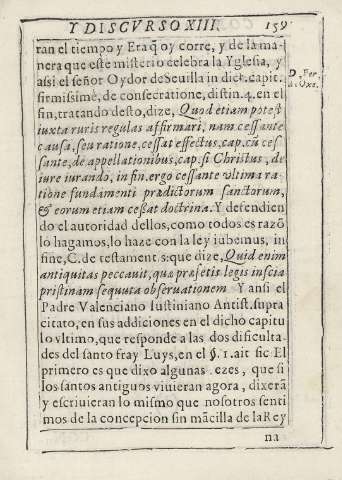 Y DISCVRSO XIII. 159
ran el tiempo y Era q̃ oy corre, y de la ma-
nera que este misterio celebra la Yglesia, y
assi el señor Oydor de Seuilla in dict. capit.
firmissimè, de consecratione, distin. 4. en el
fin, tratando desto, dize, Quod etiam potest
iuxta iuris regulas affirmari, nam cessante
causa, seu ratione, cessat effectus, cap. cũ ces
sante, de appellationibus, cap. si Christus, de
iure iurando, in fin. ergo cessante vltima ra-
tione fundamenti prædictorum sanctorum,
& eorum etiam cessat doctrina. Y defendien
do el autoridad dellos, como todos es razõ
lo hagamos, lo haze con la ley iubemus, in
fine, C. de testament. s: que dize, Quid enim
antiquitas peccauit, quæ præsetis legis inscia
pristinam sequuta obseruationem Y ansi el
Padre Valenciano Iustiniano Antist. supra
citato, en sus addiciones en el dicho capitu
lo vltimo, que responde a las dos dificulta-
des del santo fray Luys, en el §. 1. ait sic El
primero es que dixo algunas ezes, que si
los santos antiguos viuieran agora, dixerã
y escriuieran lo mismo que nosotros senti
mos de la concepcion sin mãcilla de la Rey
na
D. Fer.